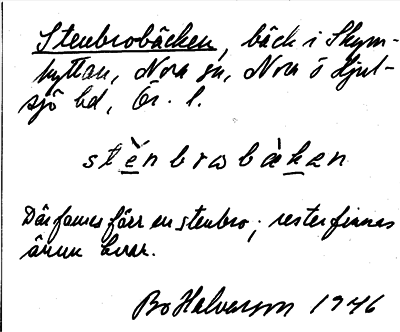 Stenbrobäcken, bäck i Skym-
hyttan, Nora sn, Nora o Hjul-
sjö bd, Ör. l.
stènbrωbàkən
Där fanns förr en stenbro; rester finnas
ännu kvar.
Bo Halverson 1946